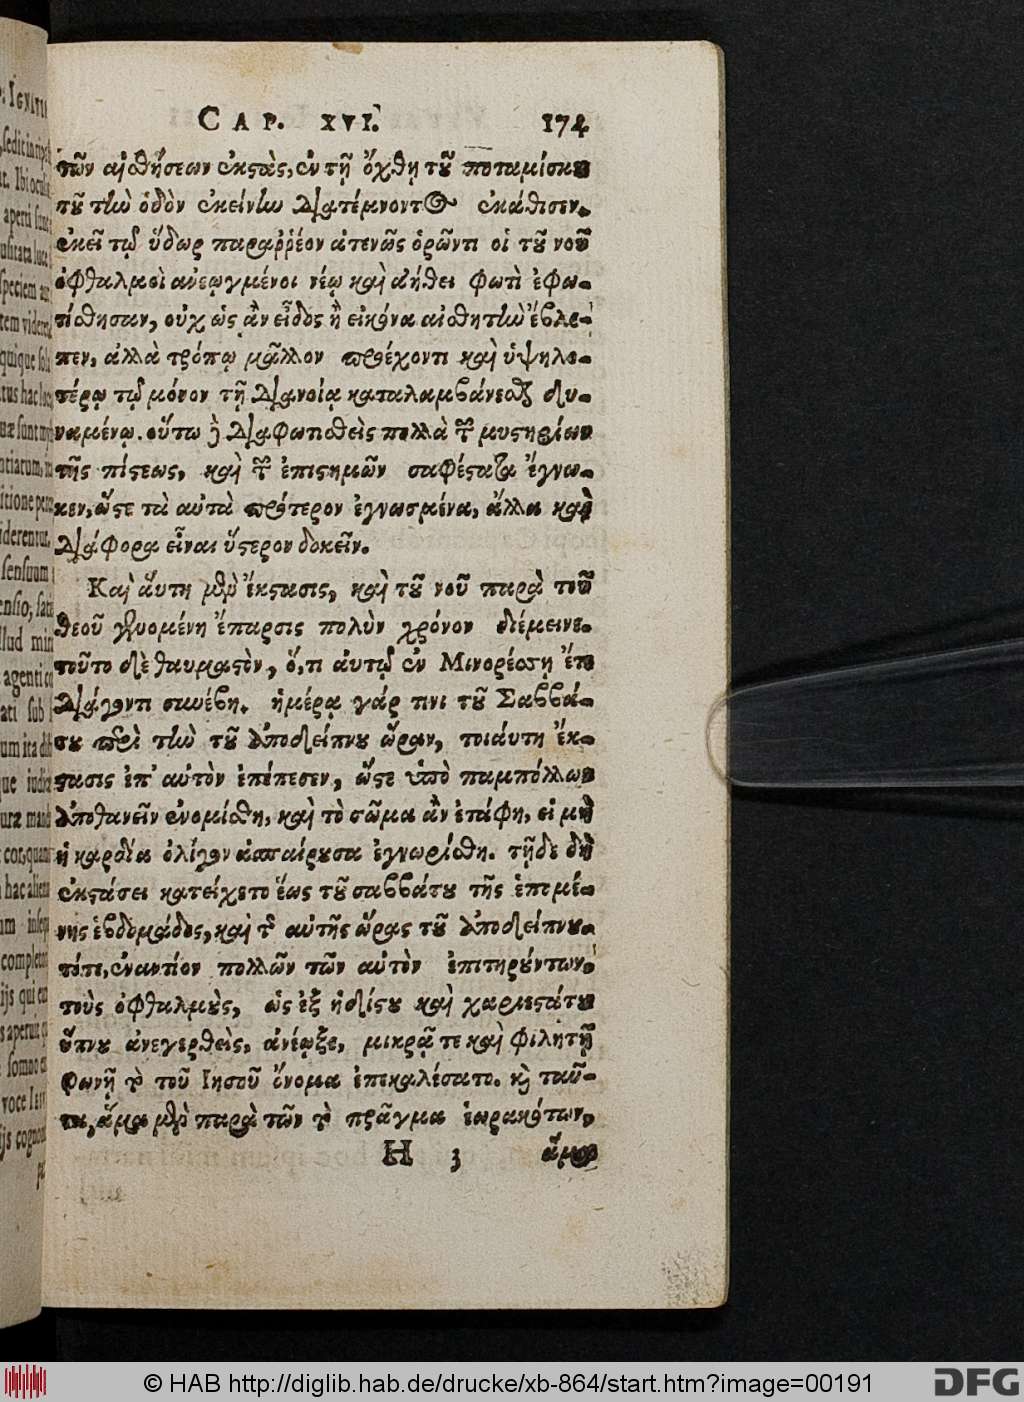 CAP. XVI. 174
τῶν αἰσθήσεων ἐκστὰς, ἐν τῇ ὄχθῃ τοῦ ποταμίσκου
τοῦ τὴν ὁδὸν ἐκείνην διατέμνοντος ἐκάθισεν.
ἐκεῖ τῷ ὕδωρ παραῤῥέον ἀτενῶς ὁρῶντι οἱ τοῦ νοῦ
ὀφθαλμοὶ ἀνεῳγμένοι νέῳ καὶ ἀήθει φωτὶ ἐφω-
τίσθησαν, οὐχ ὡς ἂν εἶδος ἢ εἰκόνα αἰσθητὴν ἔβλε-
πεν, ἀλλὰ τρόπῳ μᾶλλον προέχοντι καὶ ὑψηλο-
τέρῳ τῷ μόνον τῇ διανοίᾳ καταλαμβάνεσθαι δυ-
ναμένῳ. οὕτω δὲ διαφωτισθεὶς πολλὰ τῶν μυστηρίων
τῆς πίστεως, καὶ τῶν ἐπιστημῶν σαφέστατα ἔγνω-
κεν, ὥστε τὰ αὐτὰ πρότερον ἐγνωσμένα, ἄλλα καὶ
διάφορα εἶναι ὕστερον δοκεῖν.
Καὶ αὕτη μὲν ἔκστασις, καὶ τοῦ νοῦ παρὰ τοῦ
θεοῦ γενομένη ἔπαρσις πολὺν χρόνον διέμεινε.
τοῦτο δὲ θαυμαστὸν, ὅ,τι αὐτῷ ἐν Μινορέσῃ ἔτι
διάγοντι συνέβη. ἡμέρᾳ γάρ τινι τοῦ Σαββά-
του περὶ τὴν τοῦ ἀποδείπνου ὥραν, τοιαύτη ἔκ-
στασις ἐπ' αὐτὸν ἐπέπεσεν, ὥστε ὑπὸ παμπόλλων
ἀποθανεῖν ἐνομίσθη, καὶ τὸ σῶμα ἂν ἐτάφη, εἰ μὴ
ἡ καρδία ὀλίγον ἀσπαίρουσα ἐγνωρίσθη. τῇδε δὴ
ἐκστάσει κατείχετο ἕως τοῦ σαββάτου τῆς ἑπομέ-
νης ἑβδομάδος, καὶ τῆς αὐτῆς ὥρας τοῦ ἀποδείπνου.
τότε, ἐναντίον πολλῶν τῶν αὐτὸν ἐπιτηρούντων,
τοὺς ὀφθαλμοὺς, ὡς ἐξ ἡδίστου καὶ χαριεστάτου
ὕπνου ἀνεγερθεὶς, ἀνέῳξε, μικρᾷ τε καὶ φιλητῇ
φωνῇ τὸ τοῦ Ιησοῦ ὄνομα ἐπεκαλέσατο. καὶ ταῦ-
τα, ἅμα μὲν παρὰ τῶν τὸ πρᾶγμα ἑωρακότων,
H 3 ἅμα
© HAB http://diglib.hab.de/drucke/xb-864/start.htm?image=00191
DFG